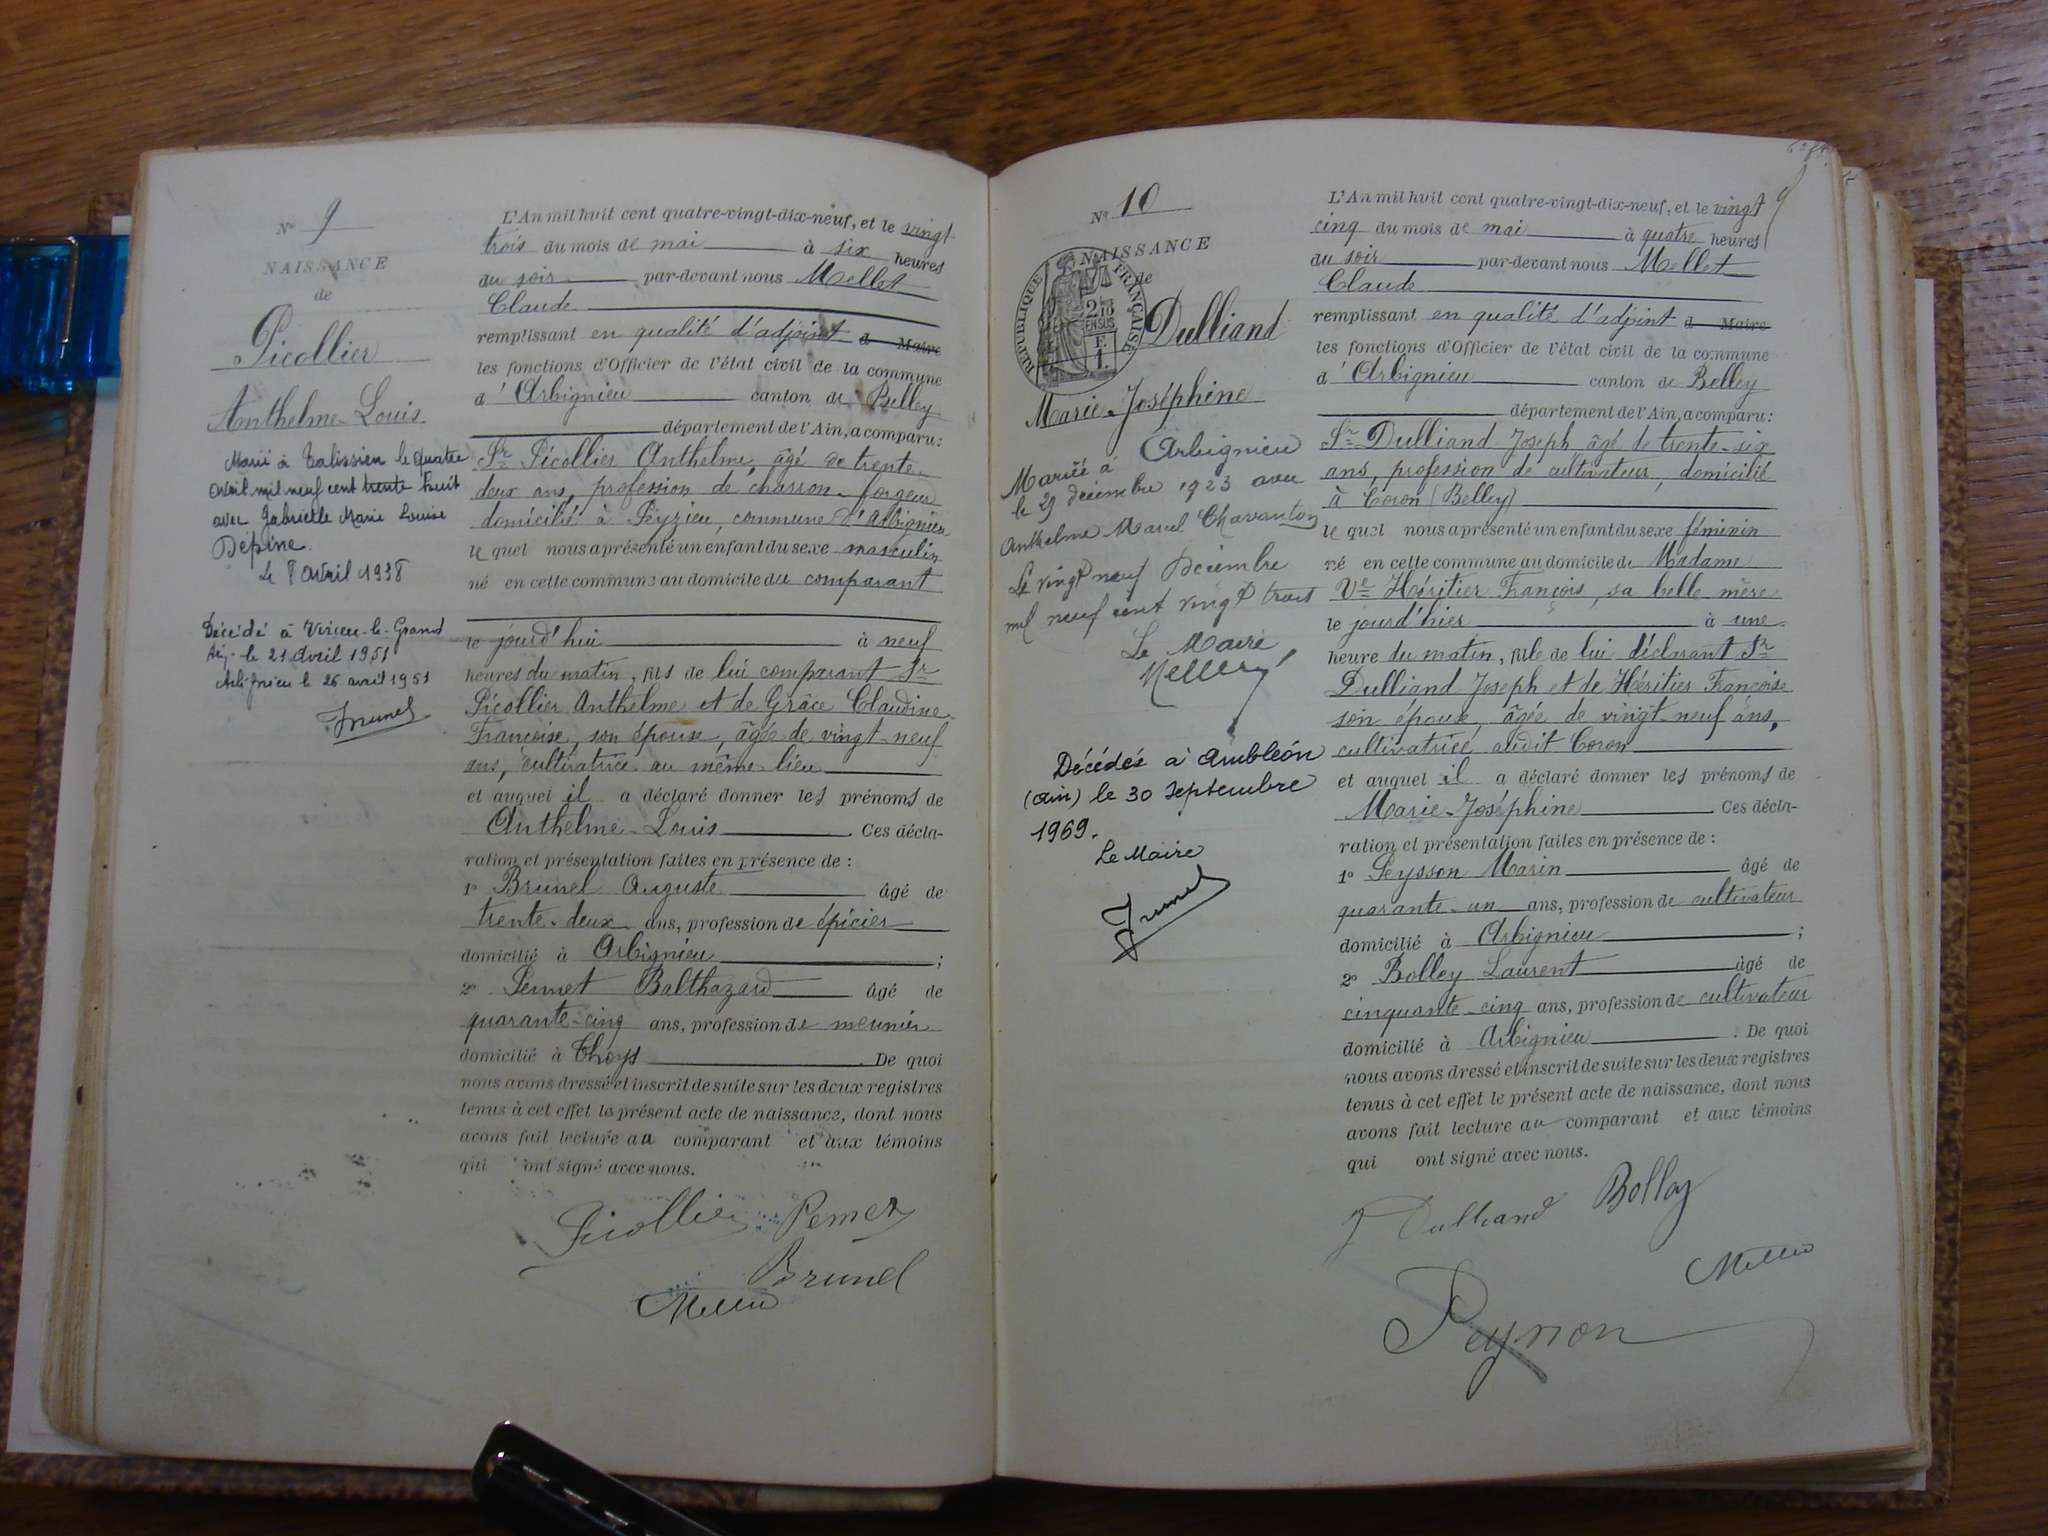 Nº 9
NAISSANCE
de
Picollier
Anthelme-Louis
Marié à Talissieu le quatre
avril mil neuf cent trente huit
avec Gabrielle Marie Louise
Dépine.
Le 8 avril 1938
Décédé à Virieu-le-Grand
Ain - le 21 avril 1951
Arbignieu le 26 avril 1951
Brunel
L'An mil huit cent quatre-vingt-dix-neuf, et le vingt
trois du mois de mai à six heures
du soir par-devant nous Mellet
Claude
remplissant en qualité d'adjoint d Maire
les fonctions d'Officier de l'état civil de la commune
d'Arbignieu canton de Belley
département de l'Ain, a comparu:
Sr Picollier Anthelme, âgé de trente-
deux ans, profession de charron-forgeur
domicilié à Peyzieu, commune d'Arbignieu
lequel nous a présenté un enfant du sexe masculin
né en cette commune au domicile du comparant
le jourd'hui à neuf
heures du matin, fils de lui comparant Sr
Picollier Anthelme et de Grâce Claudine
Françoise, son épouse, âgée de vingt-neuf
ans, cultivatrice au même lieu
et auquel il a déclaré donner les prénoms de
Anthelme-Louis. Ces décla-
ration et présentation faites en présence de:
1º Brunel Auguste âgé de
trente-deux ans, profession de épicier
domicilié à Arbignieu;
2º Pernet Balthazard âgé de
quarante-cinq ans, profession de meunier
domicilié à Thoys. De quoi
nous avons dressé et inscrit de suite sur les deux registres
tenus à cet effet le présent acte de naissance, dont nous
avons fait lecture au comparant et aux témoins
qui ont signé avec nous.
Picollier Pernet
Brunel
Mellet
Nº 10
NAISSANCE
de
RÉPUBLIQUE FRANÇAISE
2/10 EN SUS
F. 1.
Dulliand
Marie-Joséphine
Mariée à Arbignieu
le 29 décembre 1923 avec
Anthelme Marcel Chavanton
Le vingt neuf Décembre
mil neuf cent vingt trois
Le Maire
Décédée à Ambléon
(Ain) le 30 Septembre
1969.
Le Maire
Brunel
L'An mil huit cent quatre-vingt-dix-neuf, et le vingt
cinq du mois de mai à quatre heures
du soir par-devant nous Mellet
Claude
remplissant en qualité d'adjoint d Maire
les fonctions d'Officier de l'état civil de la commune
d'Arbignieu canton de Belley
département de l'Ain, a comparu:
Sr Dulliand Joseph âgé de trente-six
ans, profession de cultivateur, domicilié
à Coron (Belley)
lequel nous a présenté un enfant du sexe féminin
né en cette commune au domicile de Madame
Ve Héritier François, sa belle mère
le jourd'hier à une
heure du matin, fille de lui déclarant Sr
Dulliand Joseph et de Héritier Françoise
son épouse, âgée de vingt-neuf ans,
cultivatrice audit Coron
et auquel il a déclaré donner les prénoms de
Marie-Joséphine. Ces décla-
ration et présentation faites en présence de:
1º Peysson Marin âgé de
quarante-un ans, profession de cultivateur
domicilié à Arbignieu;
2º Bolley Laurent âgé de
cinquante-cinq ans, profession de cultivateur
domicilié à Arbignieu. De quoi
nous avons dressé et inscrit de suite sur les deux registres
tenus à cet effet le présent acte de naissance, dont nous
avons fait lecture au comparant et aux témoins
qui ont signé avec nous.
J Dulliand Bolley
Mellet
Peysson